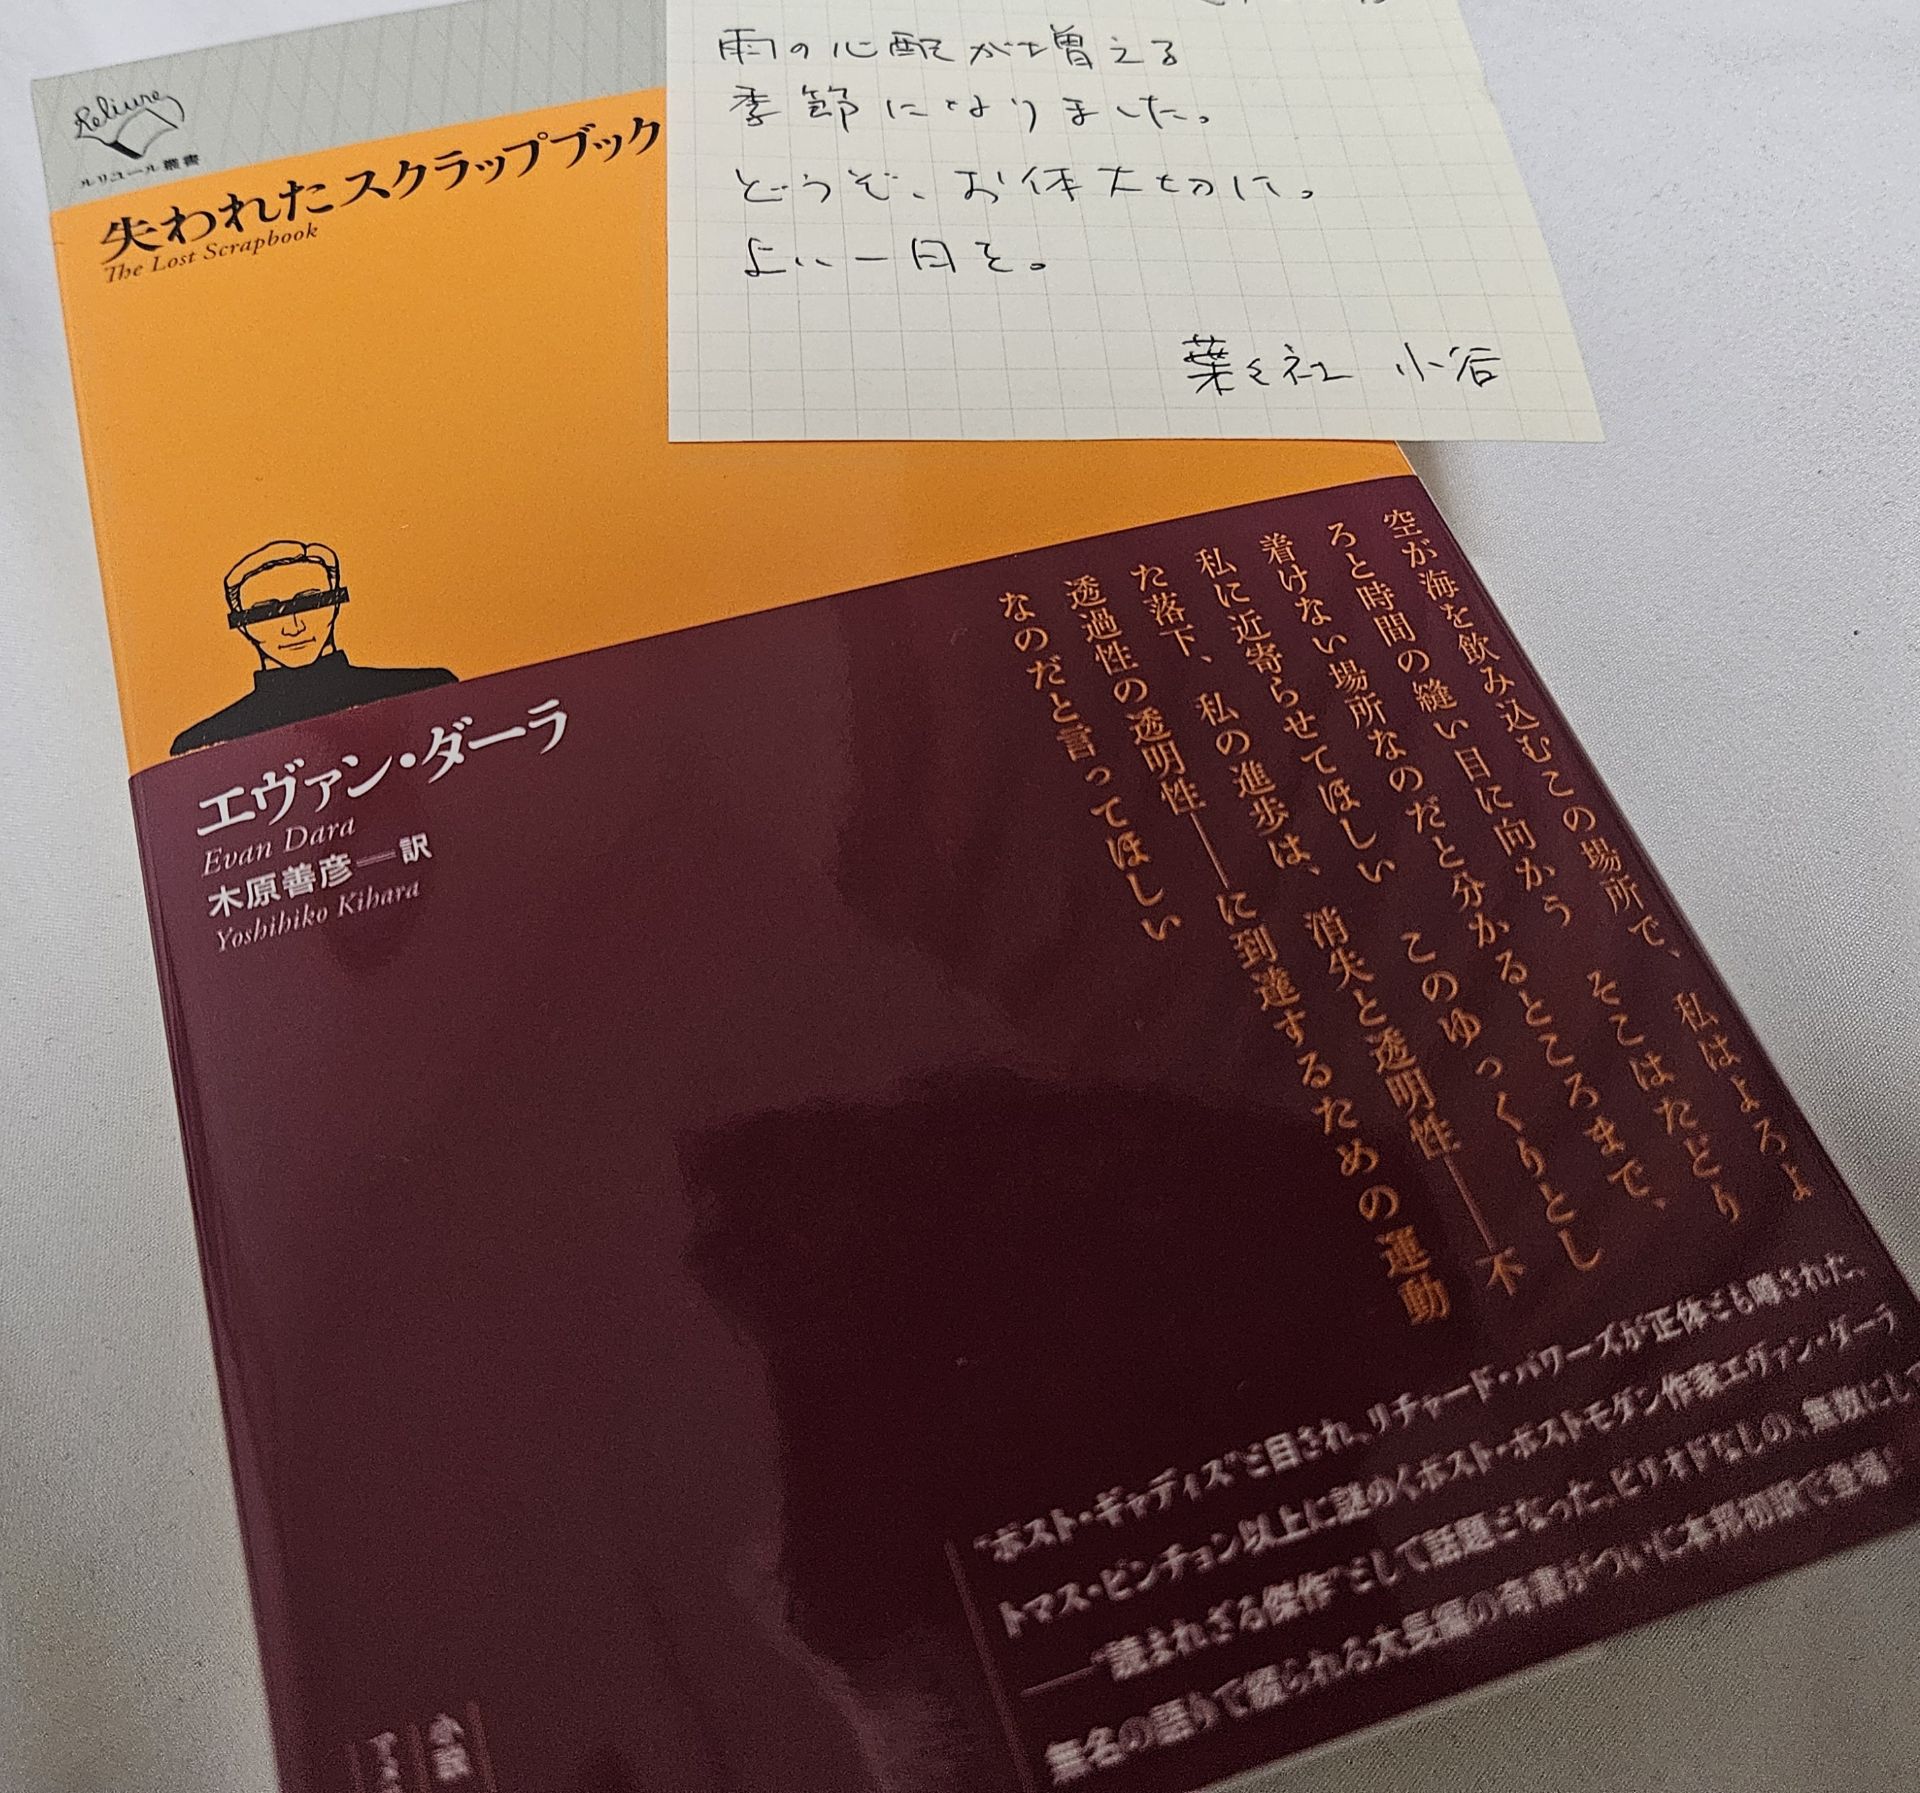 Reliure
ルリユール叢書
失われたスクラップブック
The Lost Scrapbook
雨の心配が増える
季節になりました。
どうぞ、お体大切に。
よい一日を。
葉々社 小谷
エヴァン・ダーラ
Evan Dara
木原善彦──訳
Yoshihiko Kihara
空が海を飲み込むこの場所で、私はよろよ
ろと時間の縫い目に向かう そこはたどり
着けない場所なのだと分かるところまで、
私に近寄らせてほしい このゆっくりとし
た落下、私の進歩は、消失と透明性──不
透過性の透明性──に到達するための運動
なのだと言ってほしい
“ポスト・ギャディス”と目され、リチャード・パワーズが正体とも噂された、
トマス・ピンチョン以上に謎めくポスト・ポストモダン作家エヴァン・ダーラ
──“読まれざる傑作”として話題となった、ピリオドなしの、無数にして
無名の語りで綴られる大長編の奇書がついに本邦初訳で登場!
小説